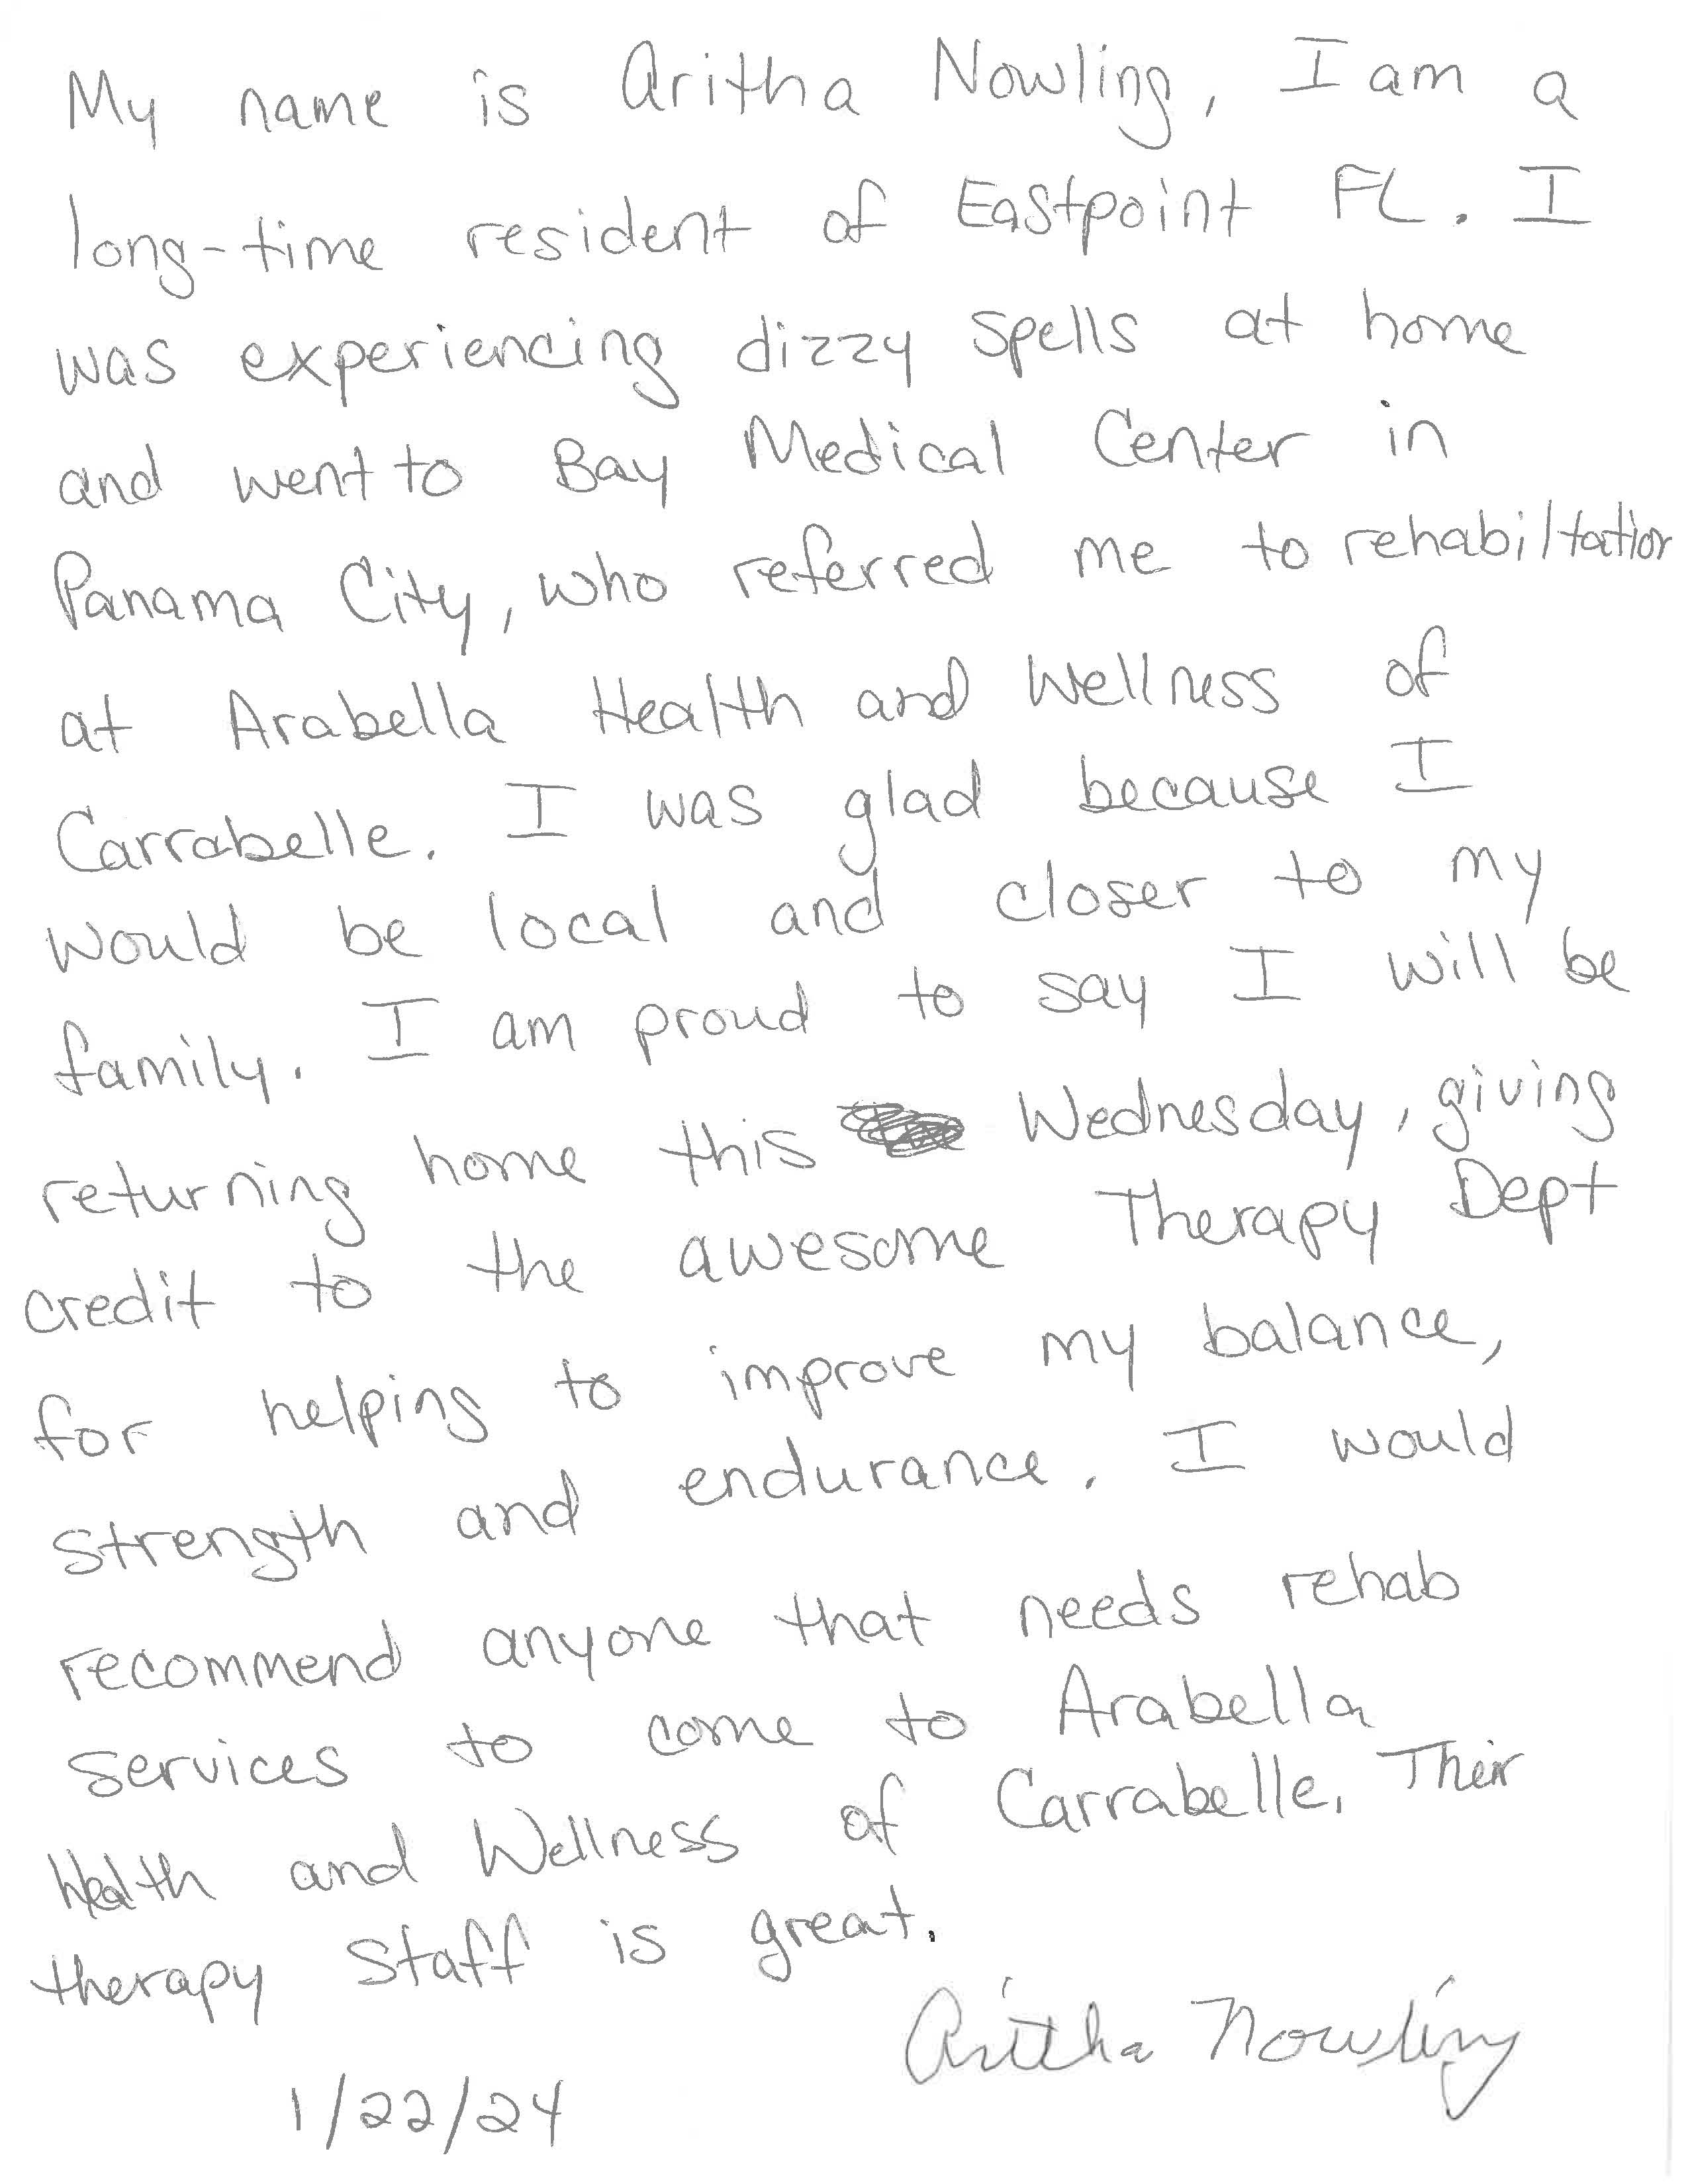 My name is Aritha Nowling, I am a
long-time resident of Eastpoint FL. I
was experiencing dizzy spells at home
and went to Bay Medical Center in
Panama City, who referred me to rehabiltation
at Arabella Health and Wellness of
Carrabelle. I was glad because I
would be local and closer to my
family. I am proud to say I will be
returning home this Wednesday, giving
credit to the awesome Therapy Dept
for helping to improve my balance,
strength and endurance. I would
recommend anyone that needs rehab
services to come to Arabella
Health and Wellness of Carrabelle. Their
therapy staff is great.
Aritha Nowling
1/22/24